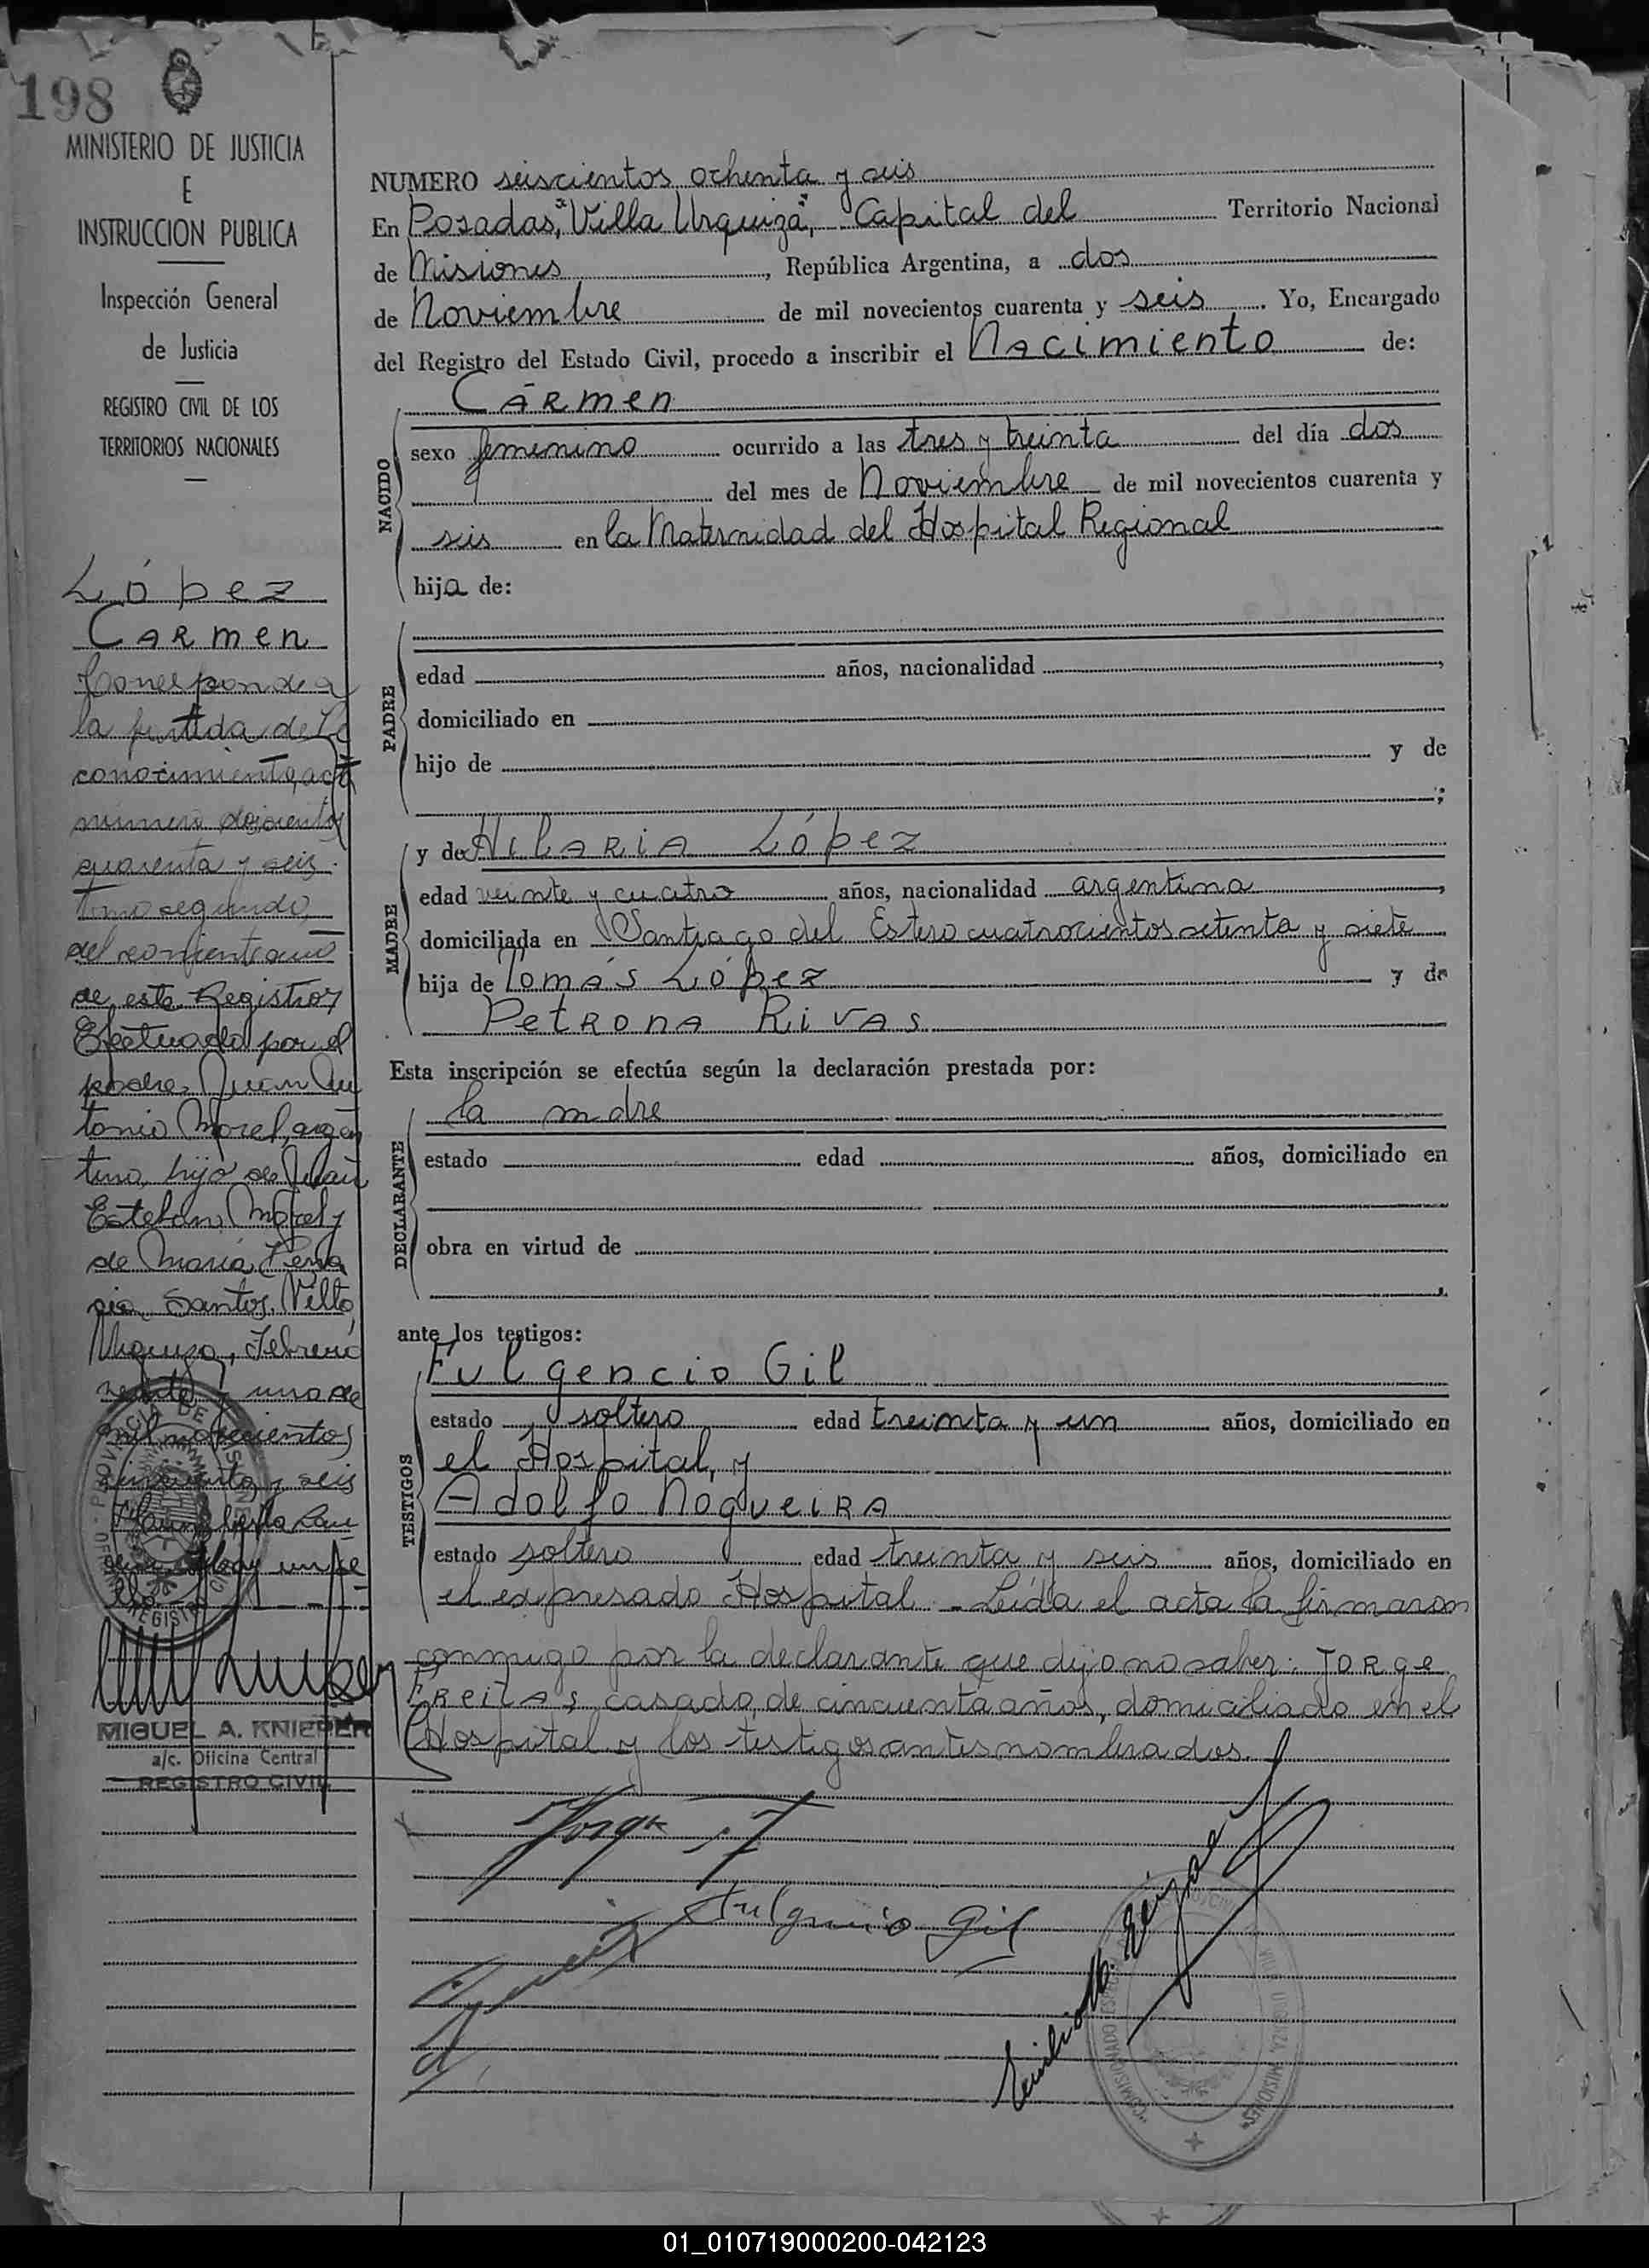 198
MINISTERIO DE JUSTICIA
E
INSTRUCCION PUBLICA
Inspección General
de Justicia
REGISTRO CIVIL DE LOS
TERRITORIOS NACIONALES
López
Carmen
Corresponde a
la partida de Re
conocimiento, acta
número doscientos
cuarenta y seis.
tomo segundo,
del corriente año
de este Registro y
Efectuada por el
padre Juan An
tonio Morel, argen
tino, hijo de Juan
Esteban Morel y
de María
Santos. Villa
Urquiza, Febrero
veinte y uno de
mil novecientos
cincuenta y seis
MIGUEL A. KNIEPER
a/c. Oficina Central
REGISTRO CIVIL
NUMERO seiscientos ochenta y seis
En Posadas, "Villa Urquiza", Capital del Territorio Nacional
de Misiones, República Argentina, a dos
de Noviembre de mil novecientos cuarenta y seis. Yo, Encargado
del Registro del Estado Civil, procedo a inscribir el Nacimiento de:
NACIDO
Cármen
sexo femenino ocurrido a las tres y treinta del día dos
del mes de Noviembre de mil novecientos cuarenta y
seis en la Maternidad del Hospital Regional
hija de:
PADRE
edad años, nacionalidad ,
domiciliado en
hijo de y de
;
MADRE
y de Hilaria López
edad veinte y cuatro años, nacionalidad argentina,
domiciliada en Santiago del Estero cuatrocientos setenta y siete
hija de Tomás López y de
Petrona Rivas
Esta inscripción se efectúa según la declaración prestada por:
DECLARANTE
la mdre
estado edad años, domiciliado en
obra en virtud de
ante los testigos:
TESTIGOS
Fulgencio Gil
estado soltero edad treinta y un años, domiciliado en
el Hospital, y
Adolfo Nogueira
estado soltero edad treinta y seis años, domiciliado en
el expresado Hospital.- Leída el acta la firmaron
conmigo por la declarante que dijo no saber: Jorge
Freitas, casado, de cincuenta años, domiciliado en el
Hospital y los testigos antes nombrados.
Jorge F
Fulgencio Gil
01_010719000200-042123